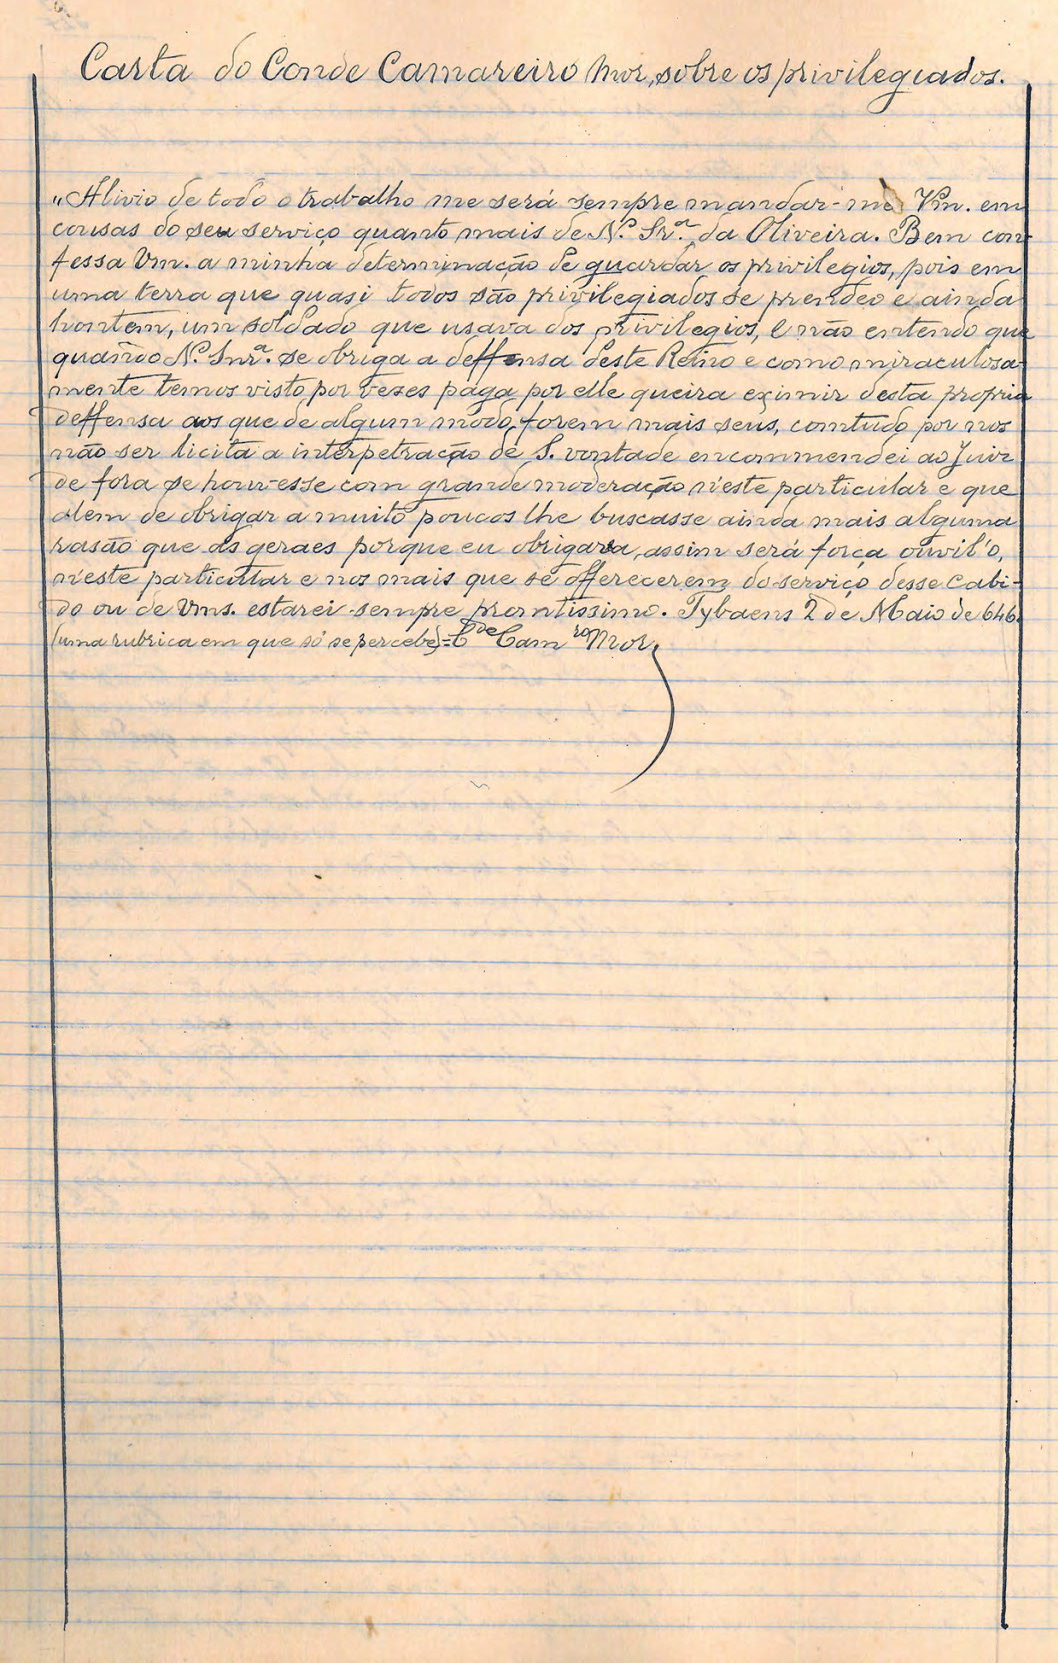 Carta do Conde Camareiro Mor, sobre os privilegiados.
"Alivio de todo o trabalho me será sempre mandar-me Vm. em
cousas do seu serviço quanto mais de N.ª Sr.ª da Oliveira. Bem con-
fessa Vm. a minha determinação de guardar os privilegios, pois em
uma terra que quasi todos são privilegiados se prendeo e ainda
hontem, um soldado que usava dos privilegios, e não entendo que
quando N.ª Snr.ª se obriga a deffensa deste Reino e como miraculosa-
mente temos visto por vezes paga por elle queira eximir desta propria
deffensa aos que de algum modo forem mais seus, comtudo por nos
não ser licita a interpetração de S. vontade encommendei ao Juiz
de fora se houvesse com grande moderação n'este particular e que
alem de obrigar a muito poucos lhe buscasse ainda mais alguma
rasão que as geraes porque eu obrigara, assim será força ouvil'o,
n'este particular e nos mais que se offerecerem do serviço desse Cabi-
do ou de Vms. estarei sempre promtissimo. Tybaens 2 de Maio de 646.
(uma rubrica em que só se percebe) = C.de Cam.ro Mor.